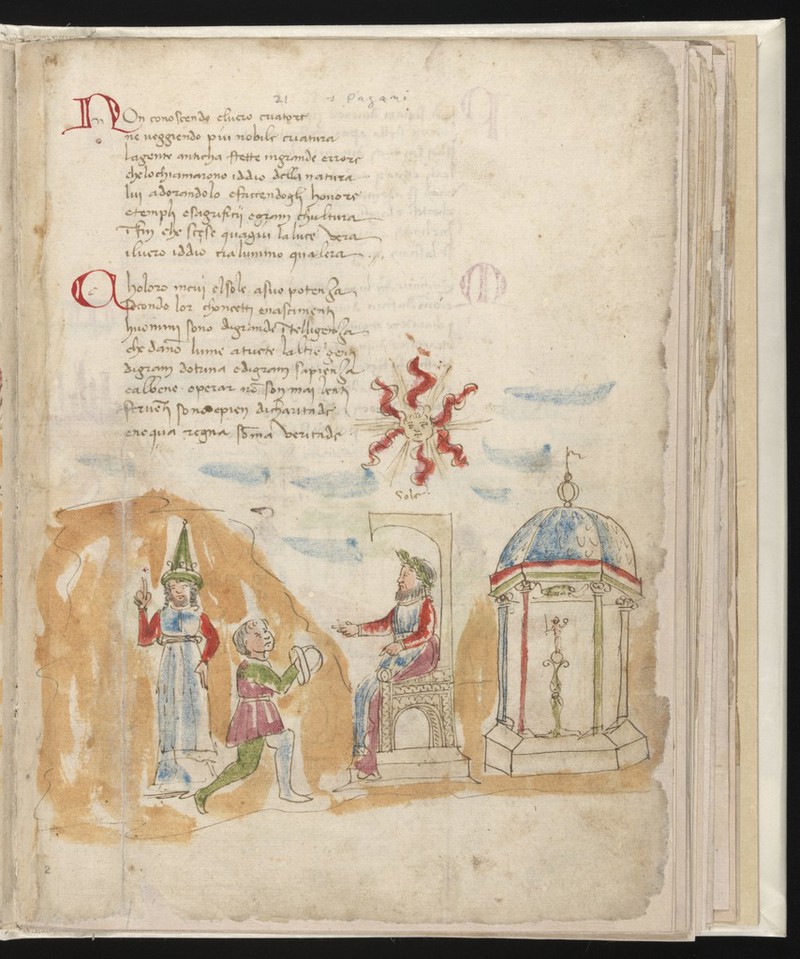 21 i Pagani
Non conoscendo eluero criatore
ne veggiendo piu nobile criatura
lagente anticha stette ingrande errore
chelochiamarono iddio della natura
lui adorandolo efaciendogli honore
etempli esagrifitii egram chultura
Ifin che scese quagiu laluce vera
iluero iddio cialumino qualera
Choloro incui elsole asuo potenza
secondo lor choncetti enascimenti
huomini sono digrande Itelligenza
che dano lume atucte laltre genti
digram dotrina edigram sapienza
eabbene operar nō son mai lenti
sono epien dicharitade
enequa regna soma veritade
Sole
2